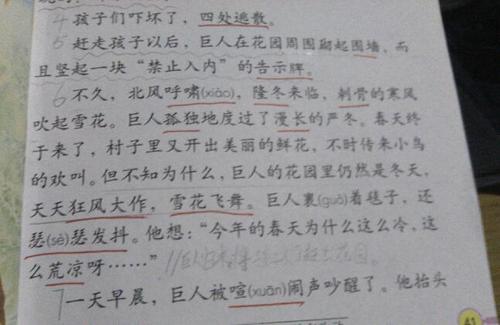 4 孩子们吓坏了，四处逃散。
5 赶走孩子以后，巨人在花园周围砌起围墙，而
且竖起一块“禁止入内”的告示牌。
6 不久，北风呼啸(xiào)，隆冬来临，刺骨的寒风
吹起雪花。巨人孤独地度过了漫长的严冬。春天终
于来了，村子里又开出美丽的鲜花，不时传来小鸟
的欢叫。但不知为什么，巨人的花园里仍然是冬天，
天天狂风大作，雪花飞舞。巨人裹(guǒ)着毯子，还
瑟(sè)瑟发抖。他想：“今年的春天为什么这么冷，这
么荒凉呀……”
7 一天早晨，巨人被喧(xuān)闹声吵醒了。他抬头
41